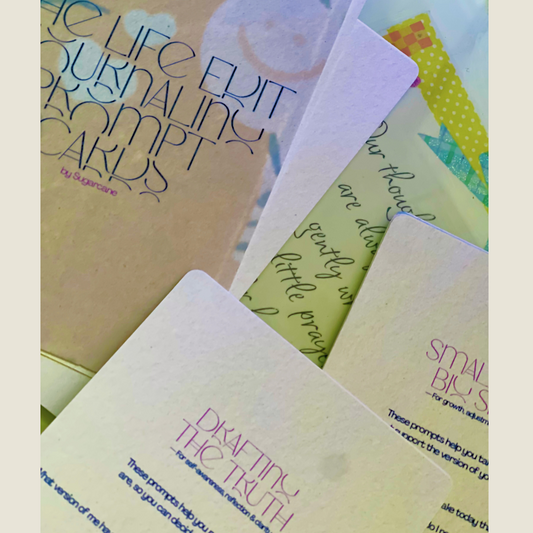 THE LIFE EDIT
JOURNALING
PROMPT
CARDS
by Sugarcane
Our thoug
are alw
gently w
little pray
DRAFTING
THE TRUTH
—For self-awareness, reflection & clarity
These prompts help you s
are, so you can decid
What version of me ha
SMAL
BIG S
—For growth, adjustm
These prompts help you ta
support the version of yo
ake today th